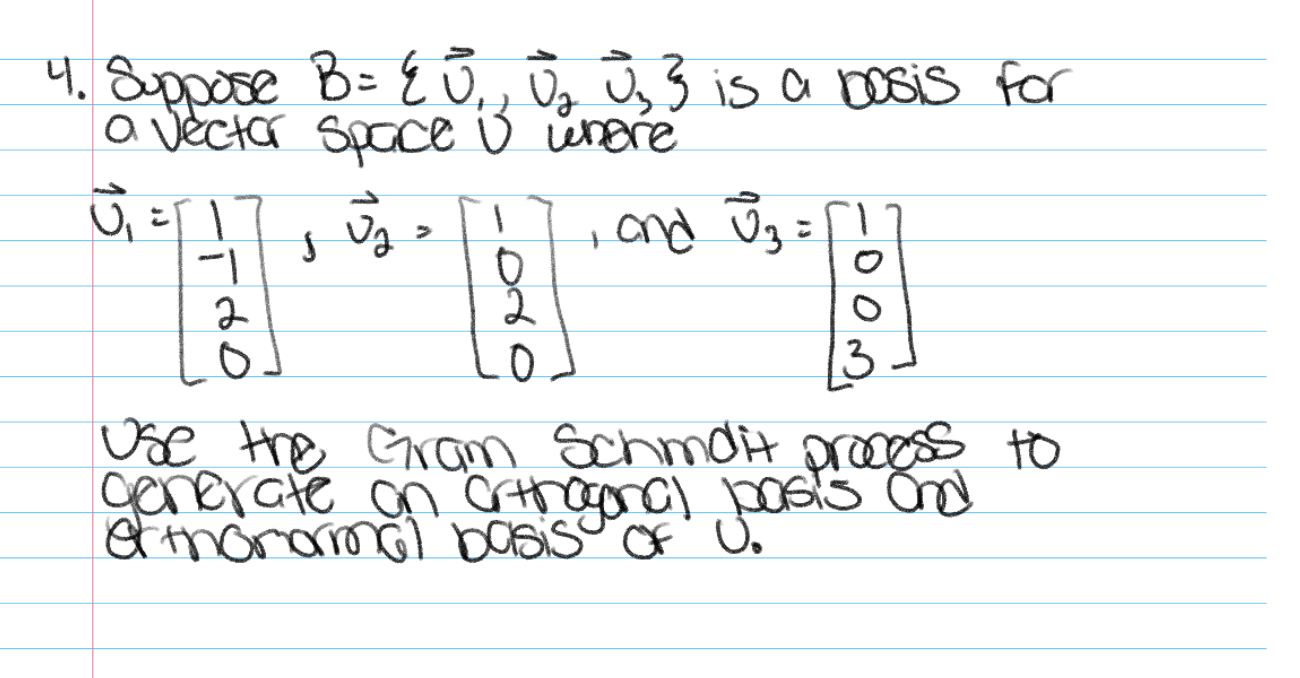 4. Suppose B= { v⃗₁, v⃗₂ v⃗₃ } is a basis for
a vector space V where
v⃗₁ = [1 -1 2 0], v⃗₂ = [1 0 2 0], and v⃗₃ = [1 0 0 3]
Use the Gram Schmdit process to
generate an orthogonal basis and
orthonormal basis of V.